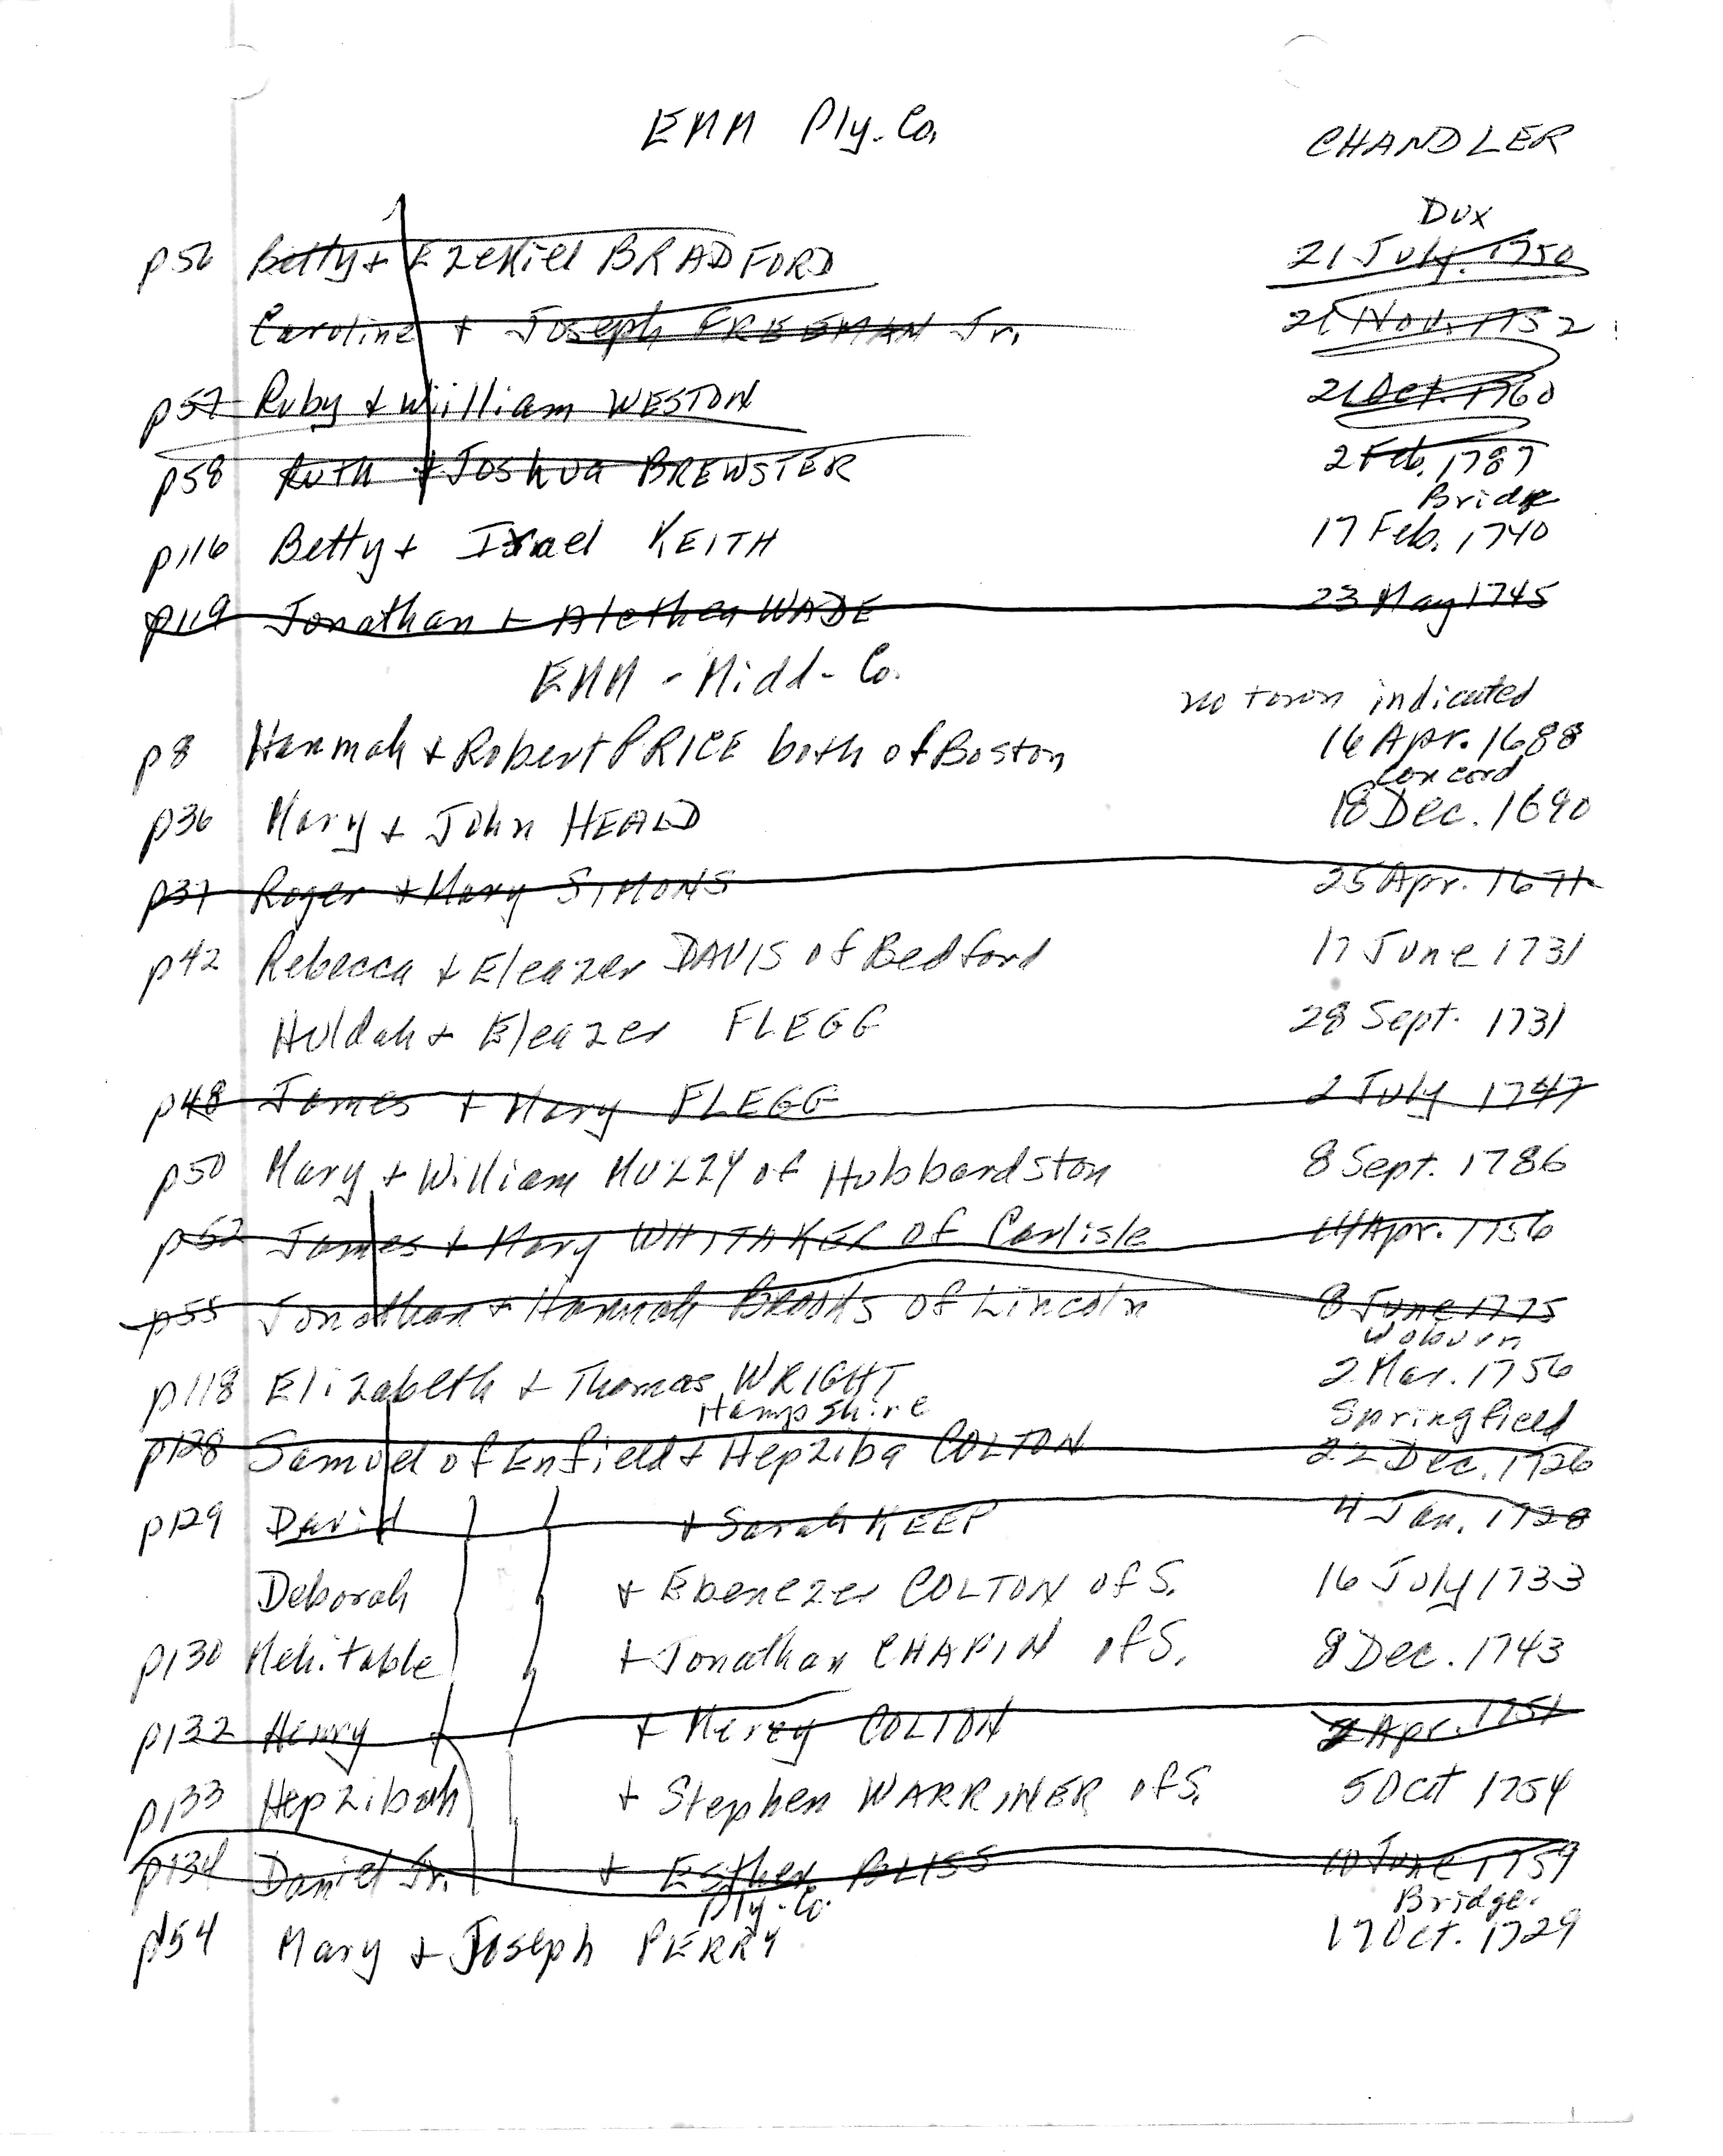 EMM Ply. Co.
CHANDLER
Dux
p56 Betty + Ezekiel BRADFORD 21 July 1750
Caroline + Joseph FREEMAN Jr. 21 Nov. 1752
p57 Ruby + William WESTON 21 Oct. 1760
p58 Ruth + Joshua BREWSTER 2 Feb. 1787
Bridge
p116 Betty + Israel KEITH 17 Feb. 1740
p119 Jonathan + Alethea WADE 23 May 1745
EMM - Midd - Co.
no town indicated
p8 Hannah + Robert PRICE both of Boston 16 Apr. 1688
Concord
p36 Mary + John HEALD 18 Dec. 1690
p37 Roger + Mary SIMONS 25 Apr. 1671
p42 Rebecca + Eleazer DAVIS of Bedford 17 June 1731
Huldah + Eleazer FLEGG 28 Sept. 1731
p48 James + Mary FLEGG 2 July 1747
p50 Mary + William MUZZY of Hubbardston 8 Sept. 1786
p52 James + Mary WHITAKER of Carlisle 14 Apr. 1756
p55 Jonathan + Hannah BROOKS of Lincoln 8 June 1775
Woburn
p118 Elizabeth + Thomas WRIGHT 2 Mar. 1756
Hampshire Springfield
p128 Samuel of Enfield + Hepziba COLTON 22 Dec. 1726
p129 David + Sarah KEEP 4 Jan. 1728
Deborah + Ebenezer COLTON of S. 16 July 1733
p130 Mehitable + Jonathan CHAPIN of S. 8 Dec. 1743
p132 Henry + Mercy COLTON 2 Apr. 1751
p133 Hepzibah + Stephen WARRINER of S. 5 Oct 1754
p134 Daniel Jr. + Esther BLISS 10 June 1759
Ply. Co. Bridge.
p54 Mary + Joseph PERRY 17 Oct. 1729